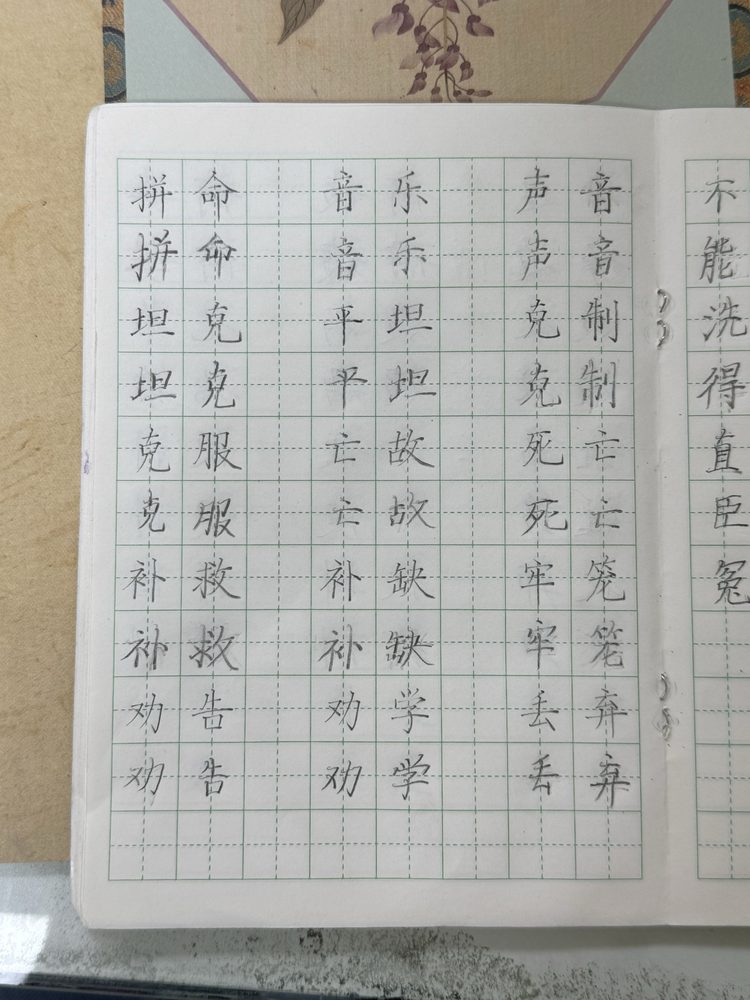 拼命 音乐 声音
拼命 音乐 声音
坦克 平坦 克制
坦克 平坦 克制
克服 亡故 死亡
克服 亡故 死亡
补救 补缺 牢笼
补救 补缺 牢笼
劝告 劝学 丢弃
劝告 劝学 丢弃
不
能
洗
得
直
臣
冤